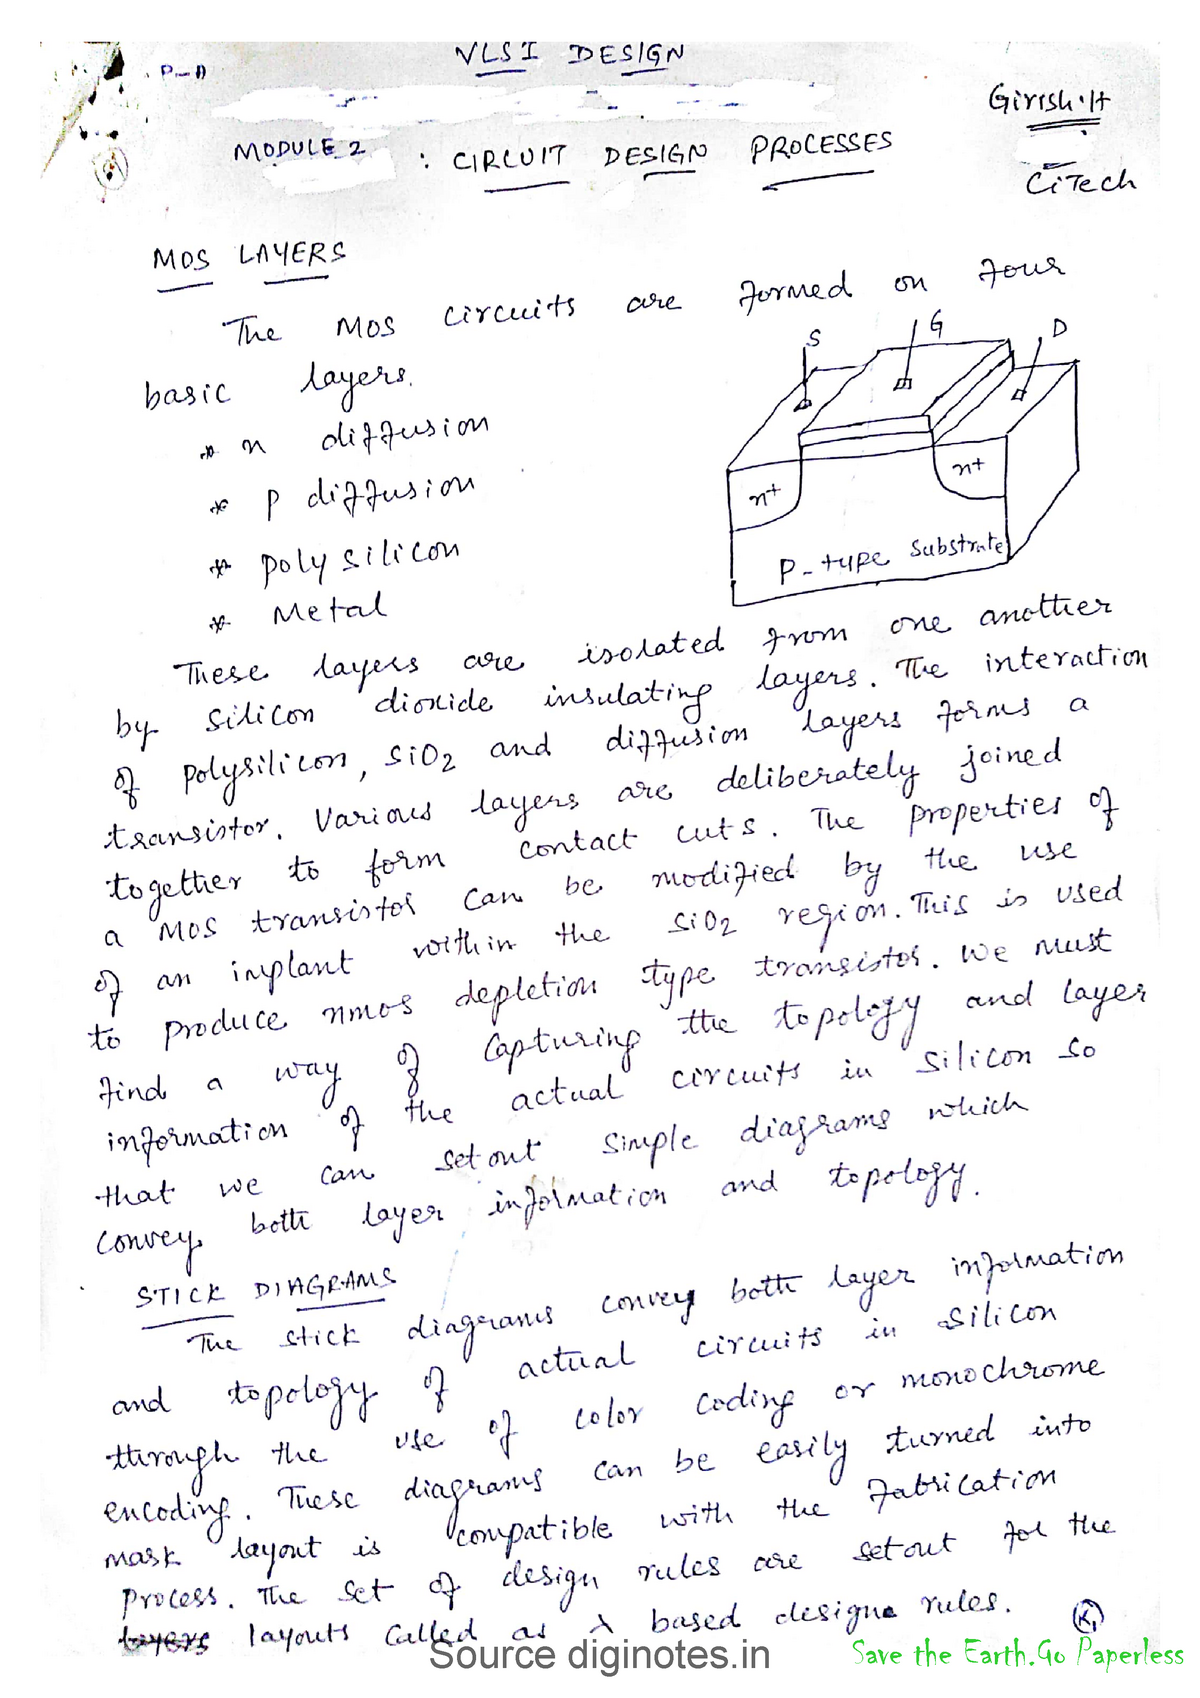 VLSI DESIGN
P-1)
Girish.H
MODULE 2 : CIRCUIT DESIGN PROCESSES
CiTech
MOS LAYERS
The MOS circuits are formed on four
basic layers.
* n diffusion
* p diffusion
* polysilicon
* Metal
S
G
D
n+
n+
P-type substrate
These layers are isolated from one another
by silicon dioxide insulating layers. The interaction
of polysilicon, SiO2 and diffusion layers forms a
transistor. Various layers are deliberately joined
together to form contact cuts. The properties of
a MOS transistor can be modified by the use
of an implant within the SiO2 region. This is used
to produce nmos depletion type transistor. We must
find a way of capturing the topology and layer
information of the actual circuits in silicon so
that we can setout simple diagrams which
convey both layer information and topology.
STICK DIAGRAMS
The stick diagrams convey both layer information
and topology of actual circuits in silicon
through the use of color coding or monochrome
encoding. These diagrams can be easily turned into
mask layout is compatible with the fabrication
process. The set of design rules are setout for the
layers layouts called as λ based designe rules.
K1
Source diginotes.in
Save the Earth.Go Paperless